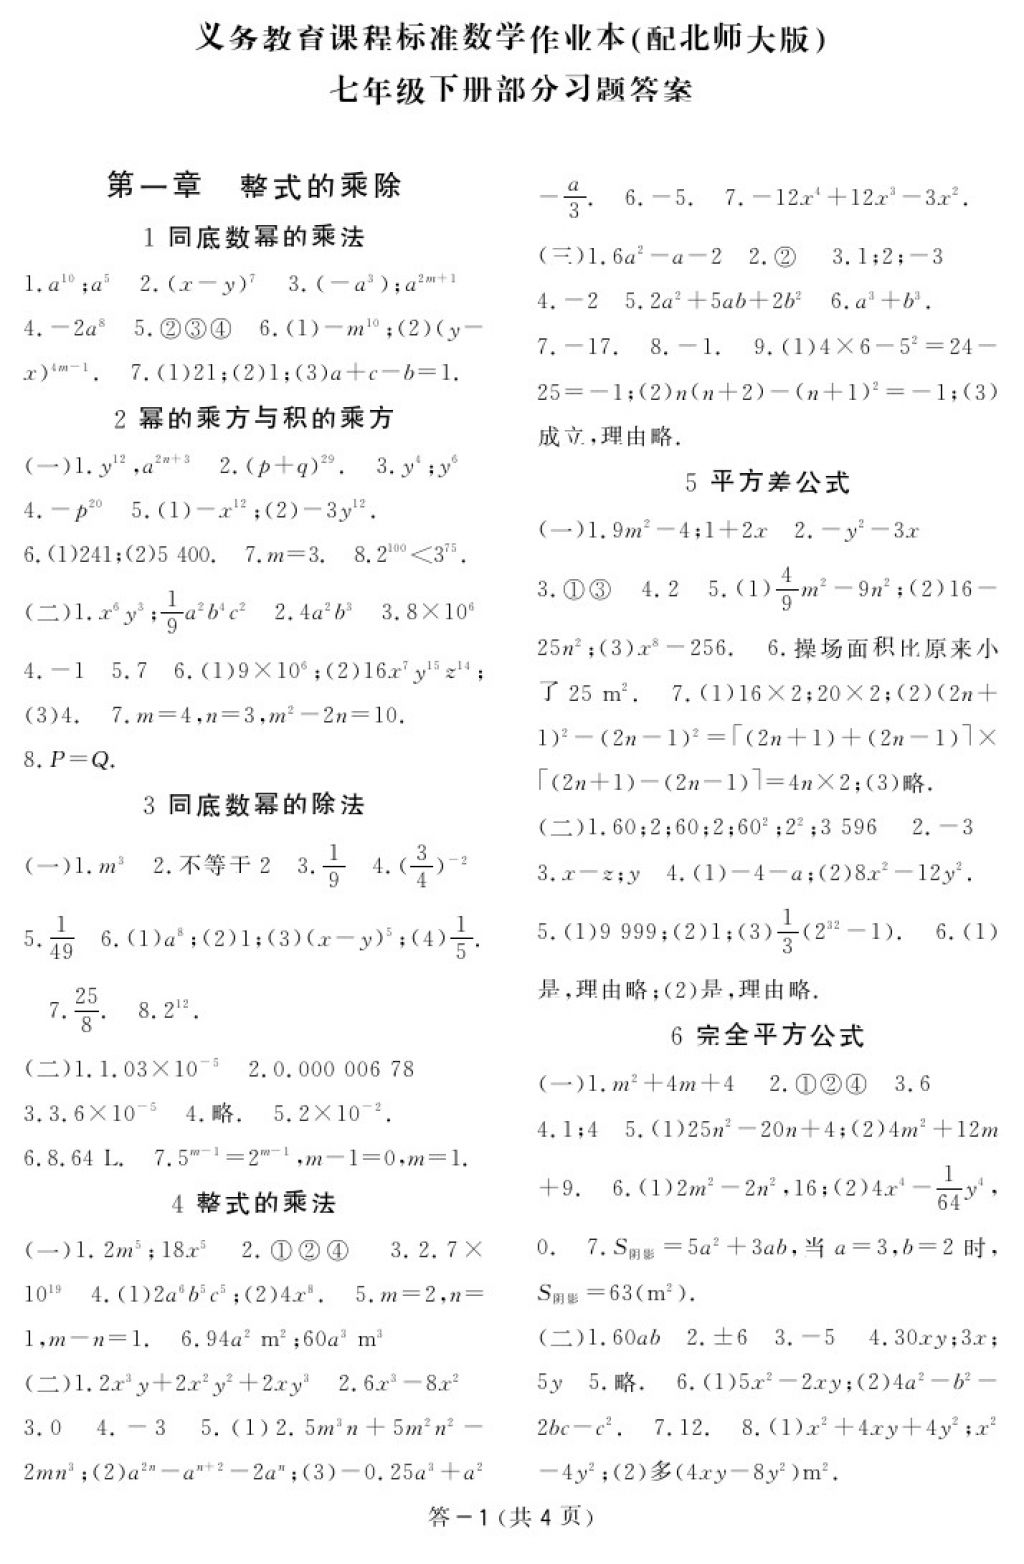 义务教育课程标准数学作业本(配北师大版)
七年级下册部分习题答案
第一章 整式的乘除
1 同底数幂的乘法
1.a¹⁰;a⁵ 2.(x-y)⁷ 3.(-a³);a²ᵐ⁺¹
4.-2a⁸ 5.②③④ 6.(1)-m¹⁰;(2)(y-
x)⁴ᵐ⁻¹. 7.(1)21;(2)1;(3)a+c-b=1.
2 幂的乘方与积的乘方
(一)1.y¹²,a²ⁿ⁺³ 2.(p+q)²⁹. 3.y⁴;y⁶
4.-p²⁰ 5.(1)-x¹²;(2)-3y¹².
6.(1)241;(2)5 400. 7.m=3. 8.2¹⁰⁰<3⁷⁵.
(二)1.x⁶y³;1/9a²b⁴c² 2.4a²b³ 3.8×10⁶
4.-1 5.7 6.(1)9×10⁶;(2)16x⁷y¹⁵z¹⁴;
(3)4. 7.m=4,n=3,m²-2n=10.
8.P=Q.
3 同底数幂的除法
(一)1.m³ 2.不等于2 3.1/9 4.(3/4)⁻²
5.1/49 6.(1)a⁸;(2)1;(3)(x-y)⁵;(4)1/5.
7.25/8. 8.2¹².
(二)1.1.03×10⁻⁵ 2.0.000 006 78
3.3.6×10⁻⁵ 4.略. 5.2×10⁻².
6.8.64 L. 7.5ᵐ⁻¹=2ᵐ⁻¹,m-1=0,m=1.
4 整式的乘法
(一)1.2m⁵;18x⁵ 2.①②④ 3.2.7×
10¹⁹ 4.(1)2a⁶b⁵c⁵;(2)4x⁸. 5.m=2,n=
1,m-n=1. 6.94a² m²;60a³ m³
(二)1.2x³y+2x²y²+2xy³ 2.6x³-8x²
3.0 4.-3 5.(1)2.5m³n+5m²n²-
2mn³;(2)a²ⁿ-aⁿ⁺²-2aⁿ;(3)-0.25a³+a²
-a/3. 6.-5. 7.-12x⁴+12x³-3x².
(三)1.6a²-a-2 2.② 3.1;2;-3
4.-2 5.2a²+5ab+2b² 6.a³+b³.
7.-17. 8.-1. 9.(1)4×6-5²=24-
25=-1;(2)n(n+2)-(n+1)²=-1;(3)
成立,理由略.
5 平方差公式
(一)1.9m²-4;1+2x 2.-y²-3x
3.①③ 4.2 5.(1)4/9m²-9n²;(2)16-
25n²;(3)x⁸-256. 6.操场面积比原来小
了25 m². 7.(1)16×2;20×2;(2)(2n+
1)²-(2n-1)²=[(2n+1)+(2n-1)]×
[(2n+1)-(2n-1)]=4n×2;(3)略.
(二)1.60;2;60;2;60²;2²;3 596 2.-3
3.x-z;y 4.(1)-4-a;(2)8x²-12y².
5.(1)9 999;(2)1;(3)1/3(2³²-1). 6.(1)
是,理由略;(2)是,理由略.
6 完全平方公式
(一)1.m²+4m+4 2.①②④ 3.6
4.1;4 5.(1)25n²-20n+4;(2)4m²+12m
+9. 6.(1)2m²-2n²,16;(2)4x⁴-1/64y⁴,
0. 7.S阴影=5a²+3ab,当a=3,b=2时,
S阴影=63(m²).
(二)1.60ab 2.±6 3.-5 4.30xy;3x;
5y 5.略. 6.(1)5x²-2xy;(2)4a²-b²-
2bc-c². 7.12. 8.(1)x²+4xy+4y²;x²
-4y²;(2)多(4xy-8y²)m².
答-1(共4页)